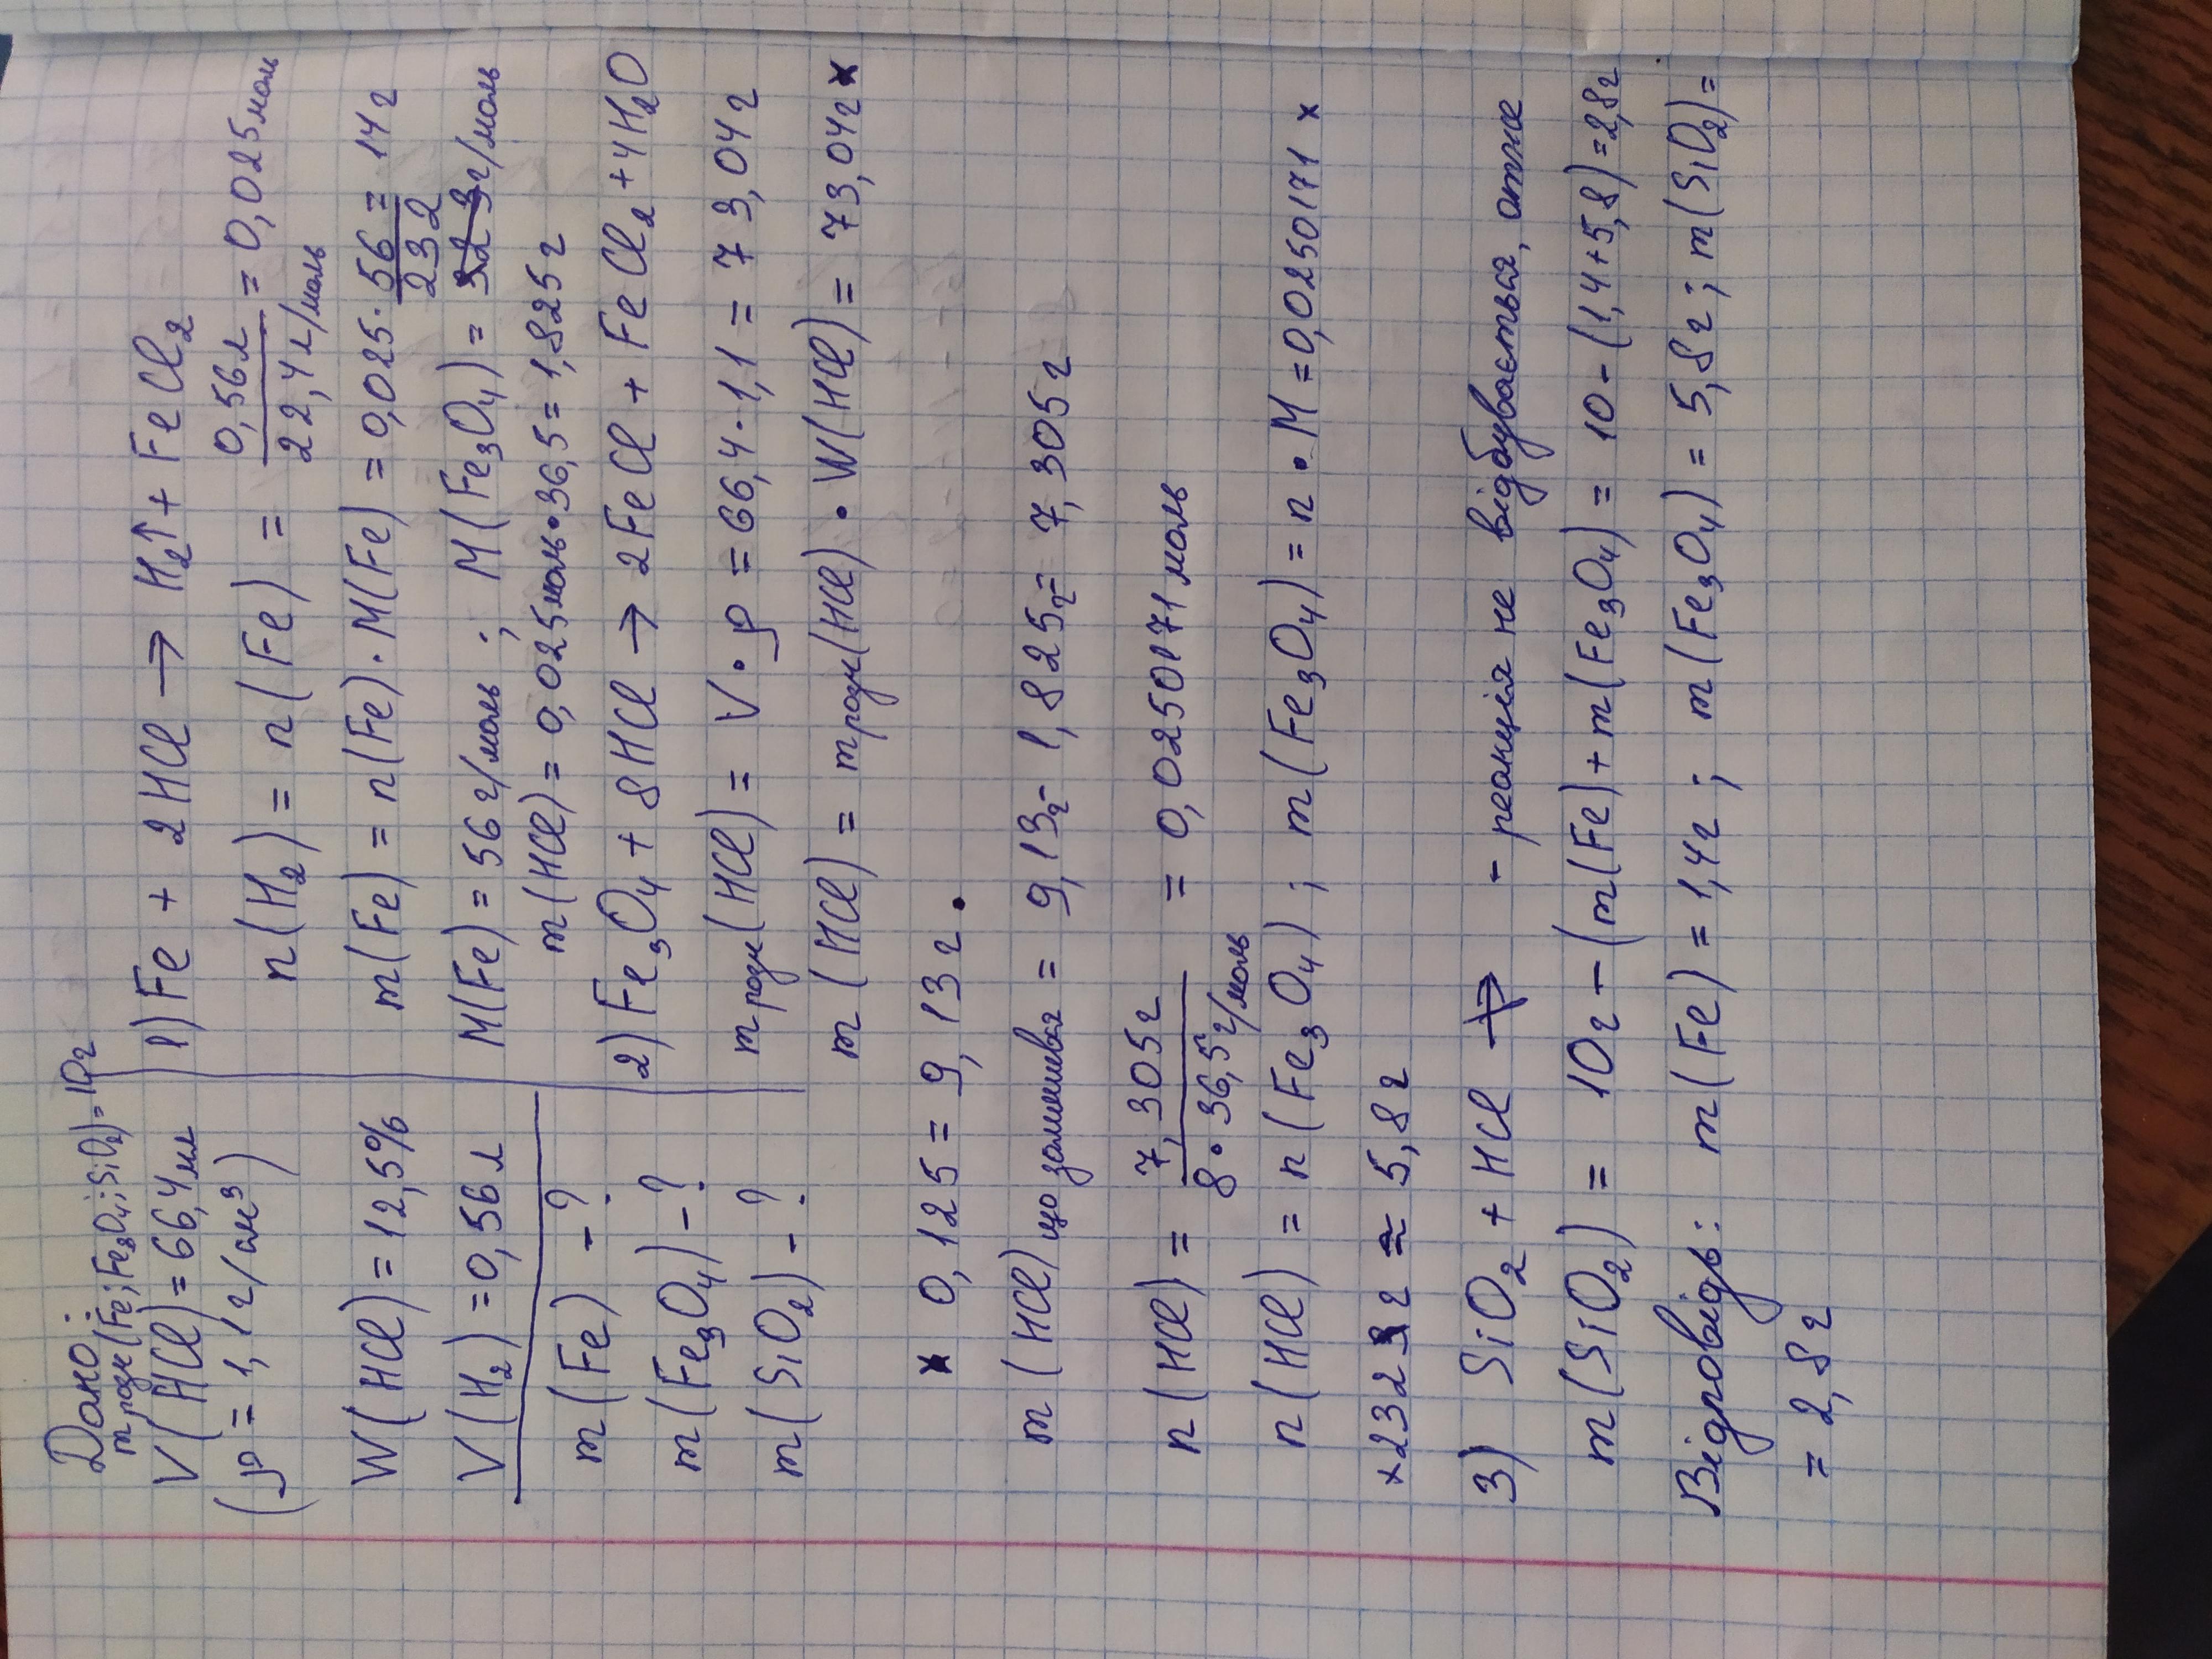 Дано:
m розч (Fe; Fe3O4; SiO2) = 10г
V(HCl) = 66,4 мл
(ρ = 1,1 г/см³)
W(HCl) = 12,5%
V(H2) = 0,56 л
m(Fe) - ?
m(Fe3O4) - ?
m(SiO2) - ?
1) Fe + 2HCl → H2↑ + FeCl2
n(H2) = n(Fe) = 0,56л / 22,4 л/моль = 0,025 моль
m(Fe) = n(Fe) · M(Fe) = 0,025 · 56 = 14 г
M(Fe) = 56 г/моль ; M(Fe3O4) = 232 г/моль
m(HCl) = 0,025 моль · 36,5 = 1,825 г
2) Fe3O4 + 8HCl → 2FeCl + FeCl2 + 4H2O
m розч (HCl) = V · ρ = 66,4 · 1,1 = 73,04 г
m(HCl) = m розч (HCl) · W(HCl) = 73,04г ×
× 0,125 = 9,13 г.
m(HCl) що залишився = 9,13г - 1,825г = 7,305 г
n(HCl) = 7,305 г / 8 · 36,5 г/моль = 0,0250171 моль
n(HCl) = n(Fe3O4) ; m(Fe3O4) = n · M = 0,0250171 ×
× 232 г ≈ 5,8 г
3) SiO2 + HCl ↛ - реакція не відбувається, отже
m(SiO2) = 10г - (m(Fe) + m(Fe3O4) = 10 - (1,4+5,8) = 2,8г
Відповідь: m(Fe) = 1,4г ; m(Fe3O4) = 5,8г ; m(SiO2) =
= 2,8 г